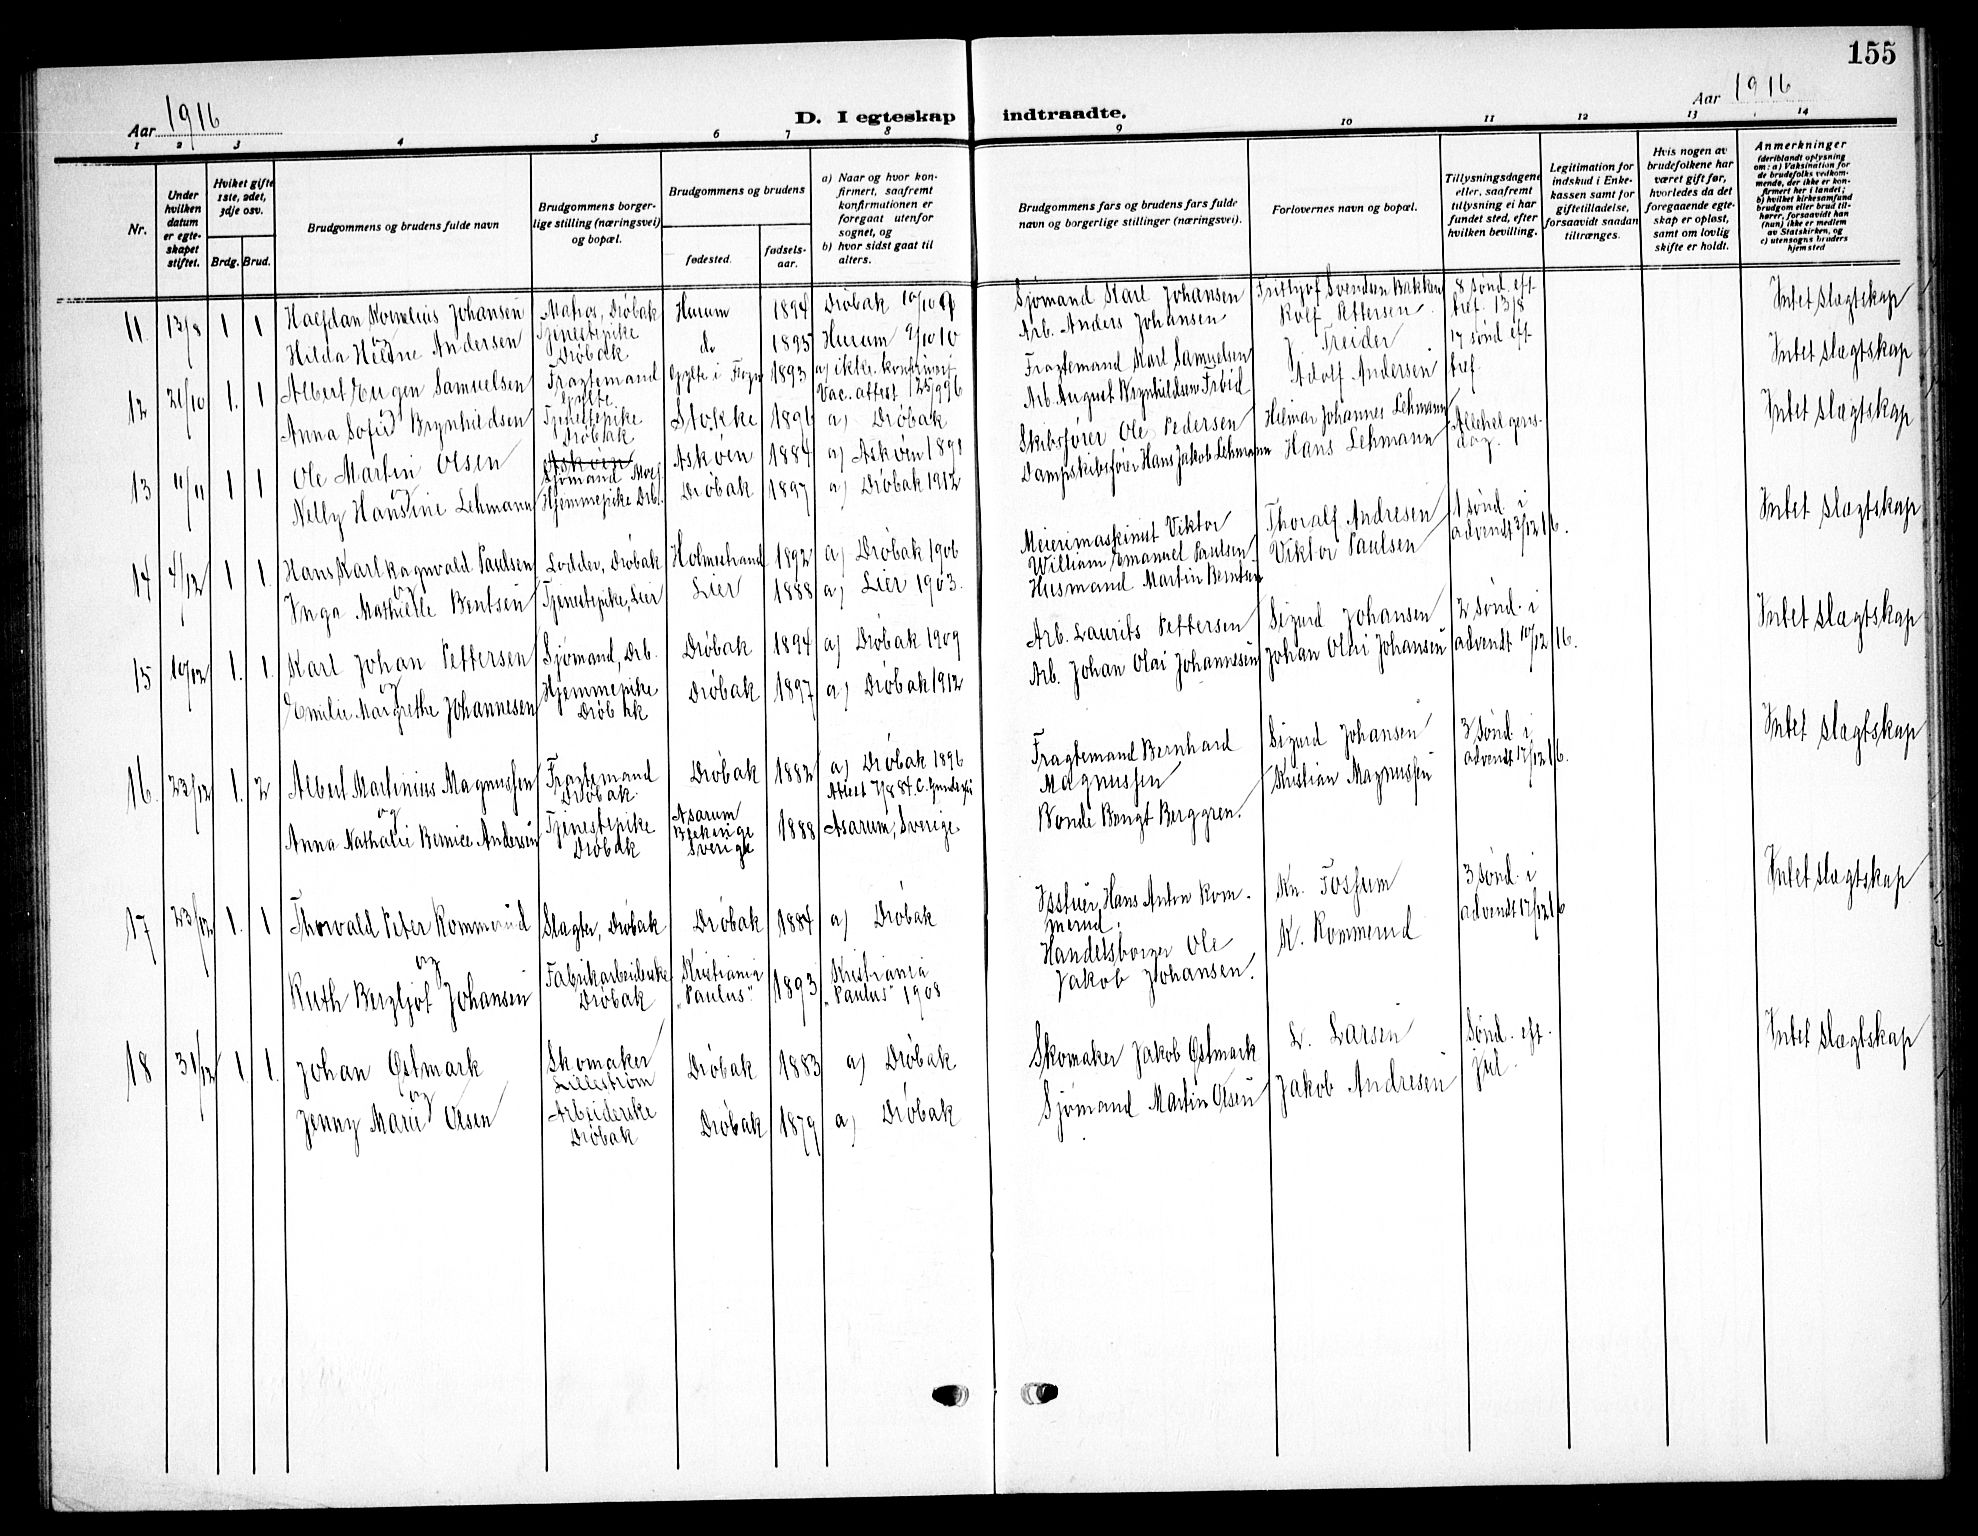 155
Aar 1916
D. I egteskap indtraadte.
Aar 1916
1 2 3 4 5 6 7 8 9 10 11 12 13 14
Nr.
Under hvilken datum er egte-skapet stiftet.
Hvilket gifte 1ste, 2det, 3dje osv.
Brdg. Brud.
Brudgommens og brudens fulde navn
Brudgommens borger-lige stilling (næringsvei) og bopæl.
Brudgommens og brudens
fødested.
fødsels-aar.
a) Naar og hvor kon-firmert, saafremt konfirmationen er foregaat utenfor sognet, og
b) hvor sidst gaat til alters.
Brudgommens fars og brudens fars fulde navn og borgerlige stillinger (næringsvei).
Forlovernes navn og bopæl.
Tillysningsdagene eller, saafremt tillysning ei har fundet sted, efter hvilken bevilling.
Legitimation for indskud i Enke-kassen samt for giftetilladelse, forsaavidt saadan tiltrænges.
Hvis nogen av brudefolkene har været gift før, hvorledes da det foregaaende egte-skap er opløst, samt om lovlig skifte er holdt.
Anmerkninger
(deriblandt oplysning om: a) Vaksination for de brudefolks vedkom-mende, der ikke er kon-firmert her i landet; b) hvilket kirkesamfund brudgom eller brud til-hører, forsaavidt han (hun) ikke er medlem av Statskirken, og c) utensogns bruders hjemsted
11 13/8 1 1 Halfdan Kornelius Johansen Matros, Drøbak Hurum 1894 Drøbak 10/10 09 Sjømand Karl Johansen Frithjof Svendsen Bakken 8 sønd. eft tref. 13/8 Intet slægtskap
og
Hilda Helene Andersen Tjenestepike Drøbak do 1895 Hurum 9/10 10 Arb. Anders Johansen Rolf Pettersen
12 21/10 1. 1 Albert Eugen Samuelsen Fragtemand Gylte Gylte i Frogn 1893 a) ikke konfirmert Vac. attest Fragtemand Karl Samuelsen Treider 17 sønd eft tref. Intet slægtskap
Anna Sofie Brynhildsen Tjenestepike Drøbak Stokke 1896 a) Drøbak Arb. August Brynhildsen Adolf Andersen
13 11/11 1 1 Ole Martin Olsen Askøen Sjømand Askøen 1884 a) Askøen 1898 Skibsfører Ole Pedersen Helmar Johannes Lehmann Allehelgens-dag. Intet slægtskap
og
Nelly Hansine Lehmann Hjemmepike Drb. Drøbak 1897 a) Drøbak 1912 Dampskibsfører Hans Jakob Lehmann Hans Lehmann
14 4/12 1 1. Hans Karl Ragnvald Paulsen Lodder, Drøbak Holmestrand 1892 a) Drøbak 1906 Meierimaskinist Viktor William Emanuel Paulsen Thoralf Andresen 1 sønd. i advent 3/12 16. Intet slægtskap
og
Inga Mathilde Bentsen Tjenestepike, Lier Lier 1888 a) Lier 1903. Husmand Martin Berntsen Viktor Paulsen
15 10/12 1. 1. Karl Johan Pettersen Sjømand, Drb. Drøbak 1894 a) Drøbak 1909 Arb. Laurits Pettersen Sigurd Johansen 2 sønd. i advent 10/12 16. Intet slægtskap
og
Emilie Margrethe Johannesen Hjemmepike Drøbak Drøbak 1897 a) Drøbak 1912 Arb. Johan Olai Johannesen Johan Olai Johansen
16. 23/12 1. 2 Albert Martinius Magnussen Fragtemand Drøbak. Drøbak 1882 a) Drøbak 1896 Fragtemand Bernhard Magnussen Sigurd Johansen 3 sønd. i advent 17/12 16. Intet slægtskap
og
Anna Nathalie Bernice Andersen Tjenestepike Drøbak Asarum Blekinge Sverige 1888 Asarum, Sverige Bonde Bengt Berggren. Kristian Magnussen
17 23/12 1. 1 Thorvald Peter Kommerud Slagter, Drøbak Drøbak 1884 a) Drøbak Hans Anton Kom-merud. Kr. Fossum 3 sønd. i advent 17/12 16 Intet slægtskap
og
Ruth Bergljot Johansen Fabrikarbeiderske Drøbak Kristiania "Paulus" 1893 Kristiania "Paulus" 1908 Handelsborger Ole Jakob Johansen. K. Kommerud
18 31/12 1. 1. Johan Østmark Skomaker Lillestrøm Drøbak 1883 a) Drøbak Skomaker Jakob Østmark L. Larsen Sønd. eft. Jul. Intet slægtskap
og
Jenny Marie Olsen Arbeiderske Drøbak Drøbak 1879 a) Drøbak Sjømand Martin Olsen Jakob Andresen